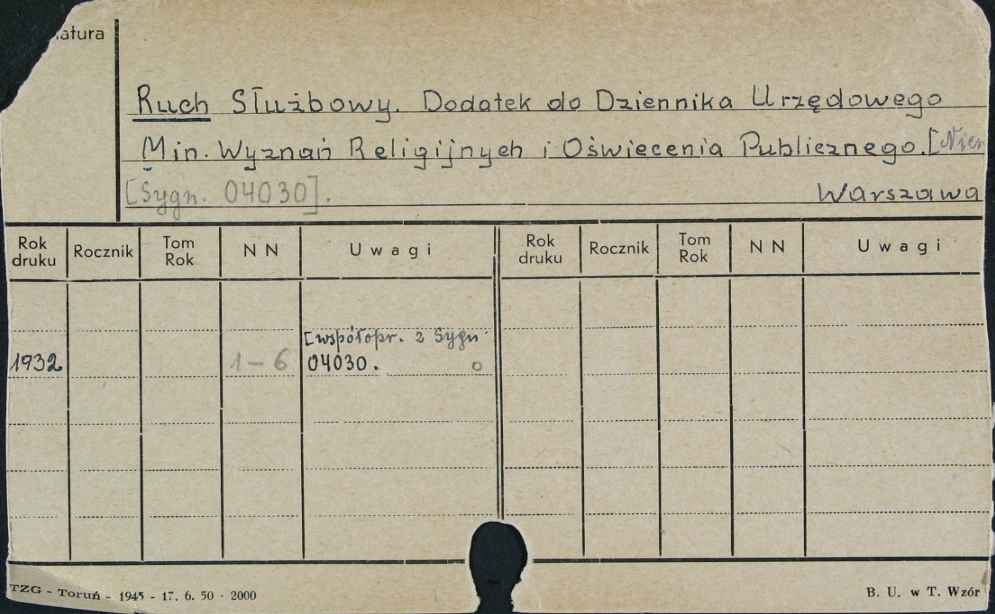 atura
Ruch Służbowy. Dodatek do Dziennika Urzędowego
Min. Wyznań Religijnych i Oświecenia Publicznego. [Nien
[Sygn. 04030].
Warszawa
Rok druku Rocznik Tom Rok NN Uwagi Rok druku Rocznik Tom Rok NN Uwagi
[współopr. z Sygn
1932 1-6 04030.
TZG - Toruń - 1945 - 17. 6. 50 · 2000 B. U. w T. Wzór